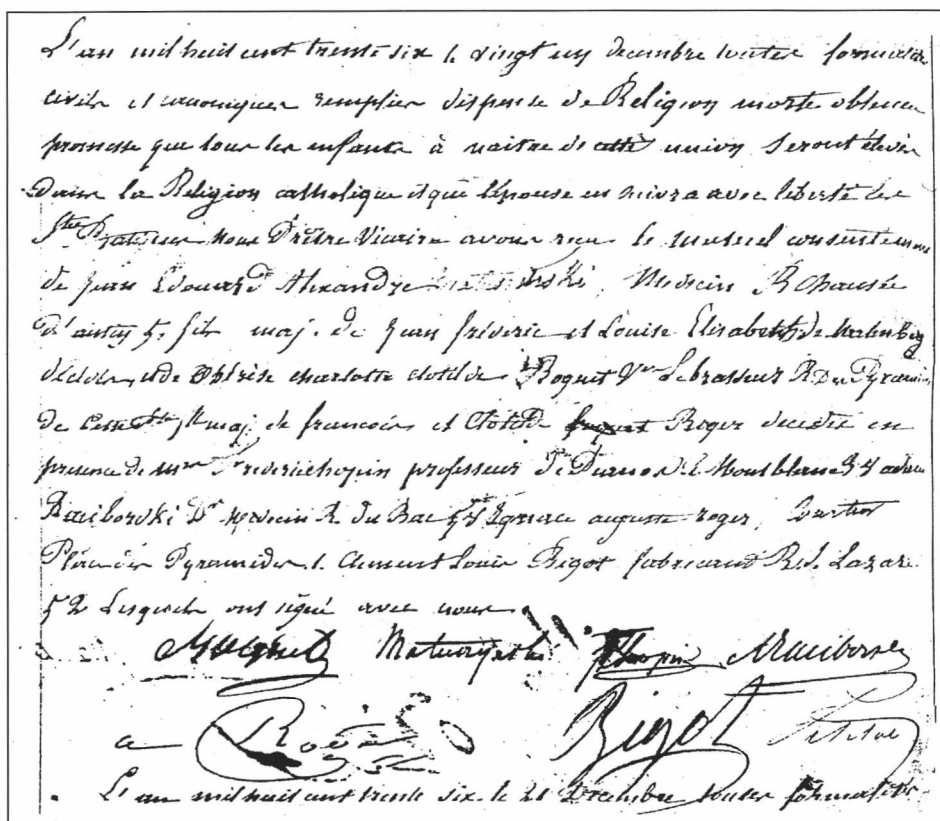 L'an mil huit cent trente six le vingt un decembre toutes formalités
civiles et canoniques remplies dispense de Religion mixte obtenue
promesse que tous les enfants à naitre de cette union seront élevés
Dans la Religion catholique et que l'épouse en suivra avec liberté les
Stes Pratiques Nous Prêtre Vicaire avons reçu le mutuel consentement
de Jean Edouard Alexandre Médecin R Chaussée
d'antin 5. fils maj. de Jean fréderic et Louise Elisabeth de
décédés, et de Thérèse charlotte clotilde Boquet Vve Lebrasseur R Des Pyramides
de cette maj. de francois et Clotilde Roger decédée en
presence de Frederic chopin professeur de Piano R. du Montblanc adam
Raciborski Dr Medecin R. du Bac auguste roger,
Place des Pyramides 1. Clement Louis Bigot fabricant R St. Lazare
52 Lesquels ont signé avec nous
Matuszynski Chopin A Raciborski
a Roger Bigot
L'an mil huit cent trente six le 21 Décembre toutes formalités